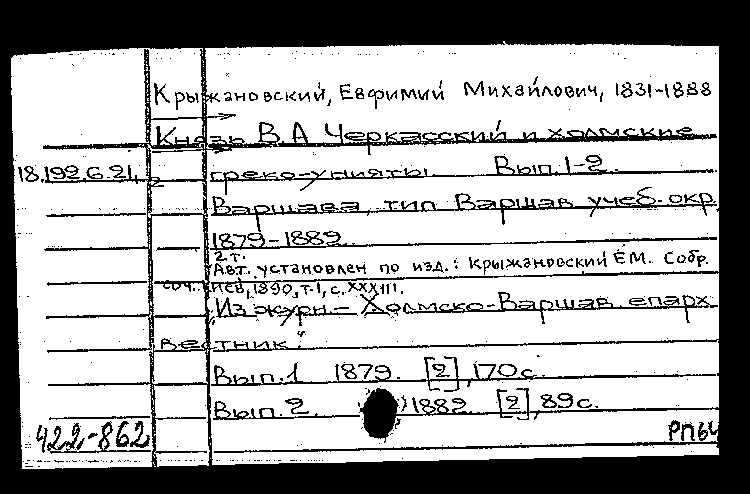 Крыжановский, Евфимий Михайлович, 1831-1888
Князь В.А Черкасский и холмские
18.192.6.21, 2 греко-унияты. Вып.1-2.
Варшава, тип Варшав учеб. окр.
1879-1882.
2 т.
Авт. установлен по изд.: Крыжановский Е.М. Собр.
соч. Киев, 1890, т.1, с. XXXIII.
"Из журн.- Холмско-Варшав епарх
вестник."
Вып.1 1879. [2], 170с.
Вып.2. 1882. [2], 89с.
422-862 РП64